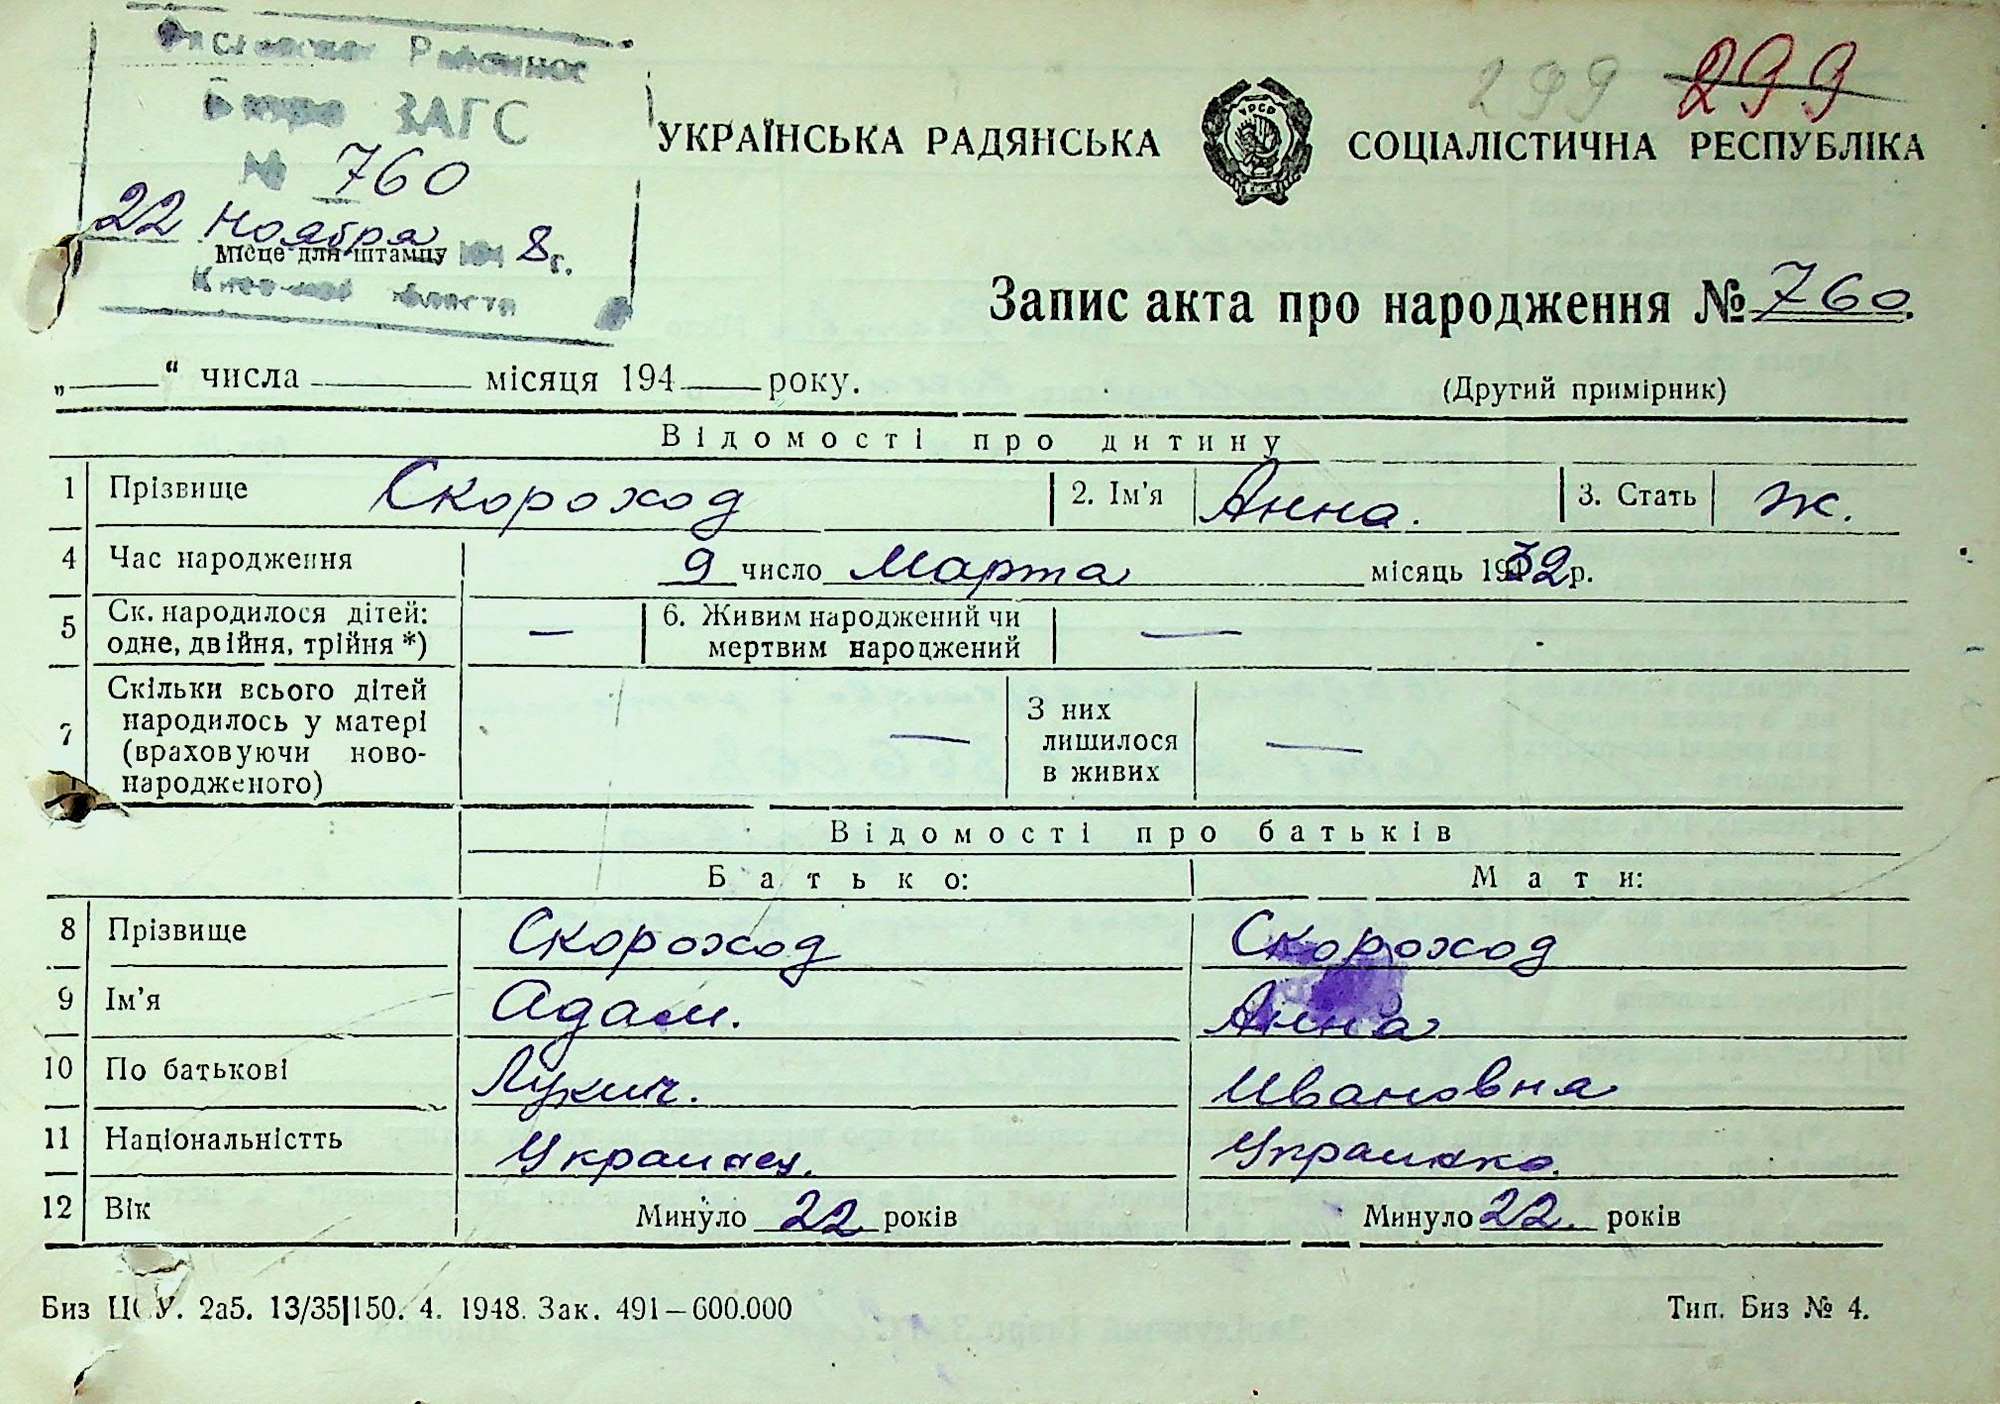 Районное
Бюро ЗАГС
№ 760
22 Ноября 1948 г.
Місце для штампу
области
299 299
УКРАЇНСЬКА РАДЯНСЬКА СОЦІАЛІСТИЧНА РЕСПУБЛІКА
УРСР
Запис акта про народження № 760.
„ “ числа місяця 194 року.
(Другий примірник)
Відомості про дитину
1 Прізвище Скороход 2. Ім’я Анна. 3. Стать Ж.
4 Час народження 9 число Марта місяць 1932 р.
5 Ск. народилося дітей: одне, двійня, трійня *) — 6. Живим народжений чи мертвим народжений —
7 Скільки всього дітей народилось у матері (враховуючи ново-народженого) — З них лишилося в живих —
Відомості про батьків
Батько: Мати:
8 Прізвище Скороход Скороход
9 Ім’я Адам. Анна
10 По батькові Лукич. Ивановна
11 Національністть Украинец. Украинка.
12 Вік Минуло 22 років Минуло 22. років
Биз ЦСУ. 2а5. 13/35|150. 4. 1948. Зак. 491—600.000
Тип. Биз № 4.